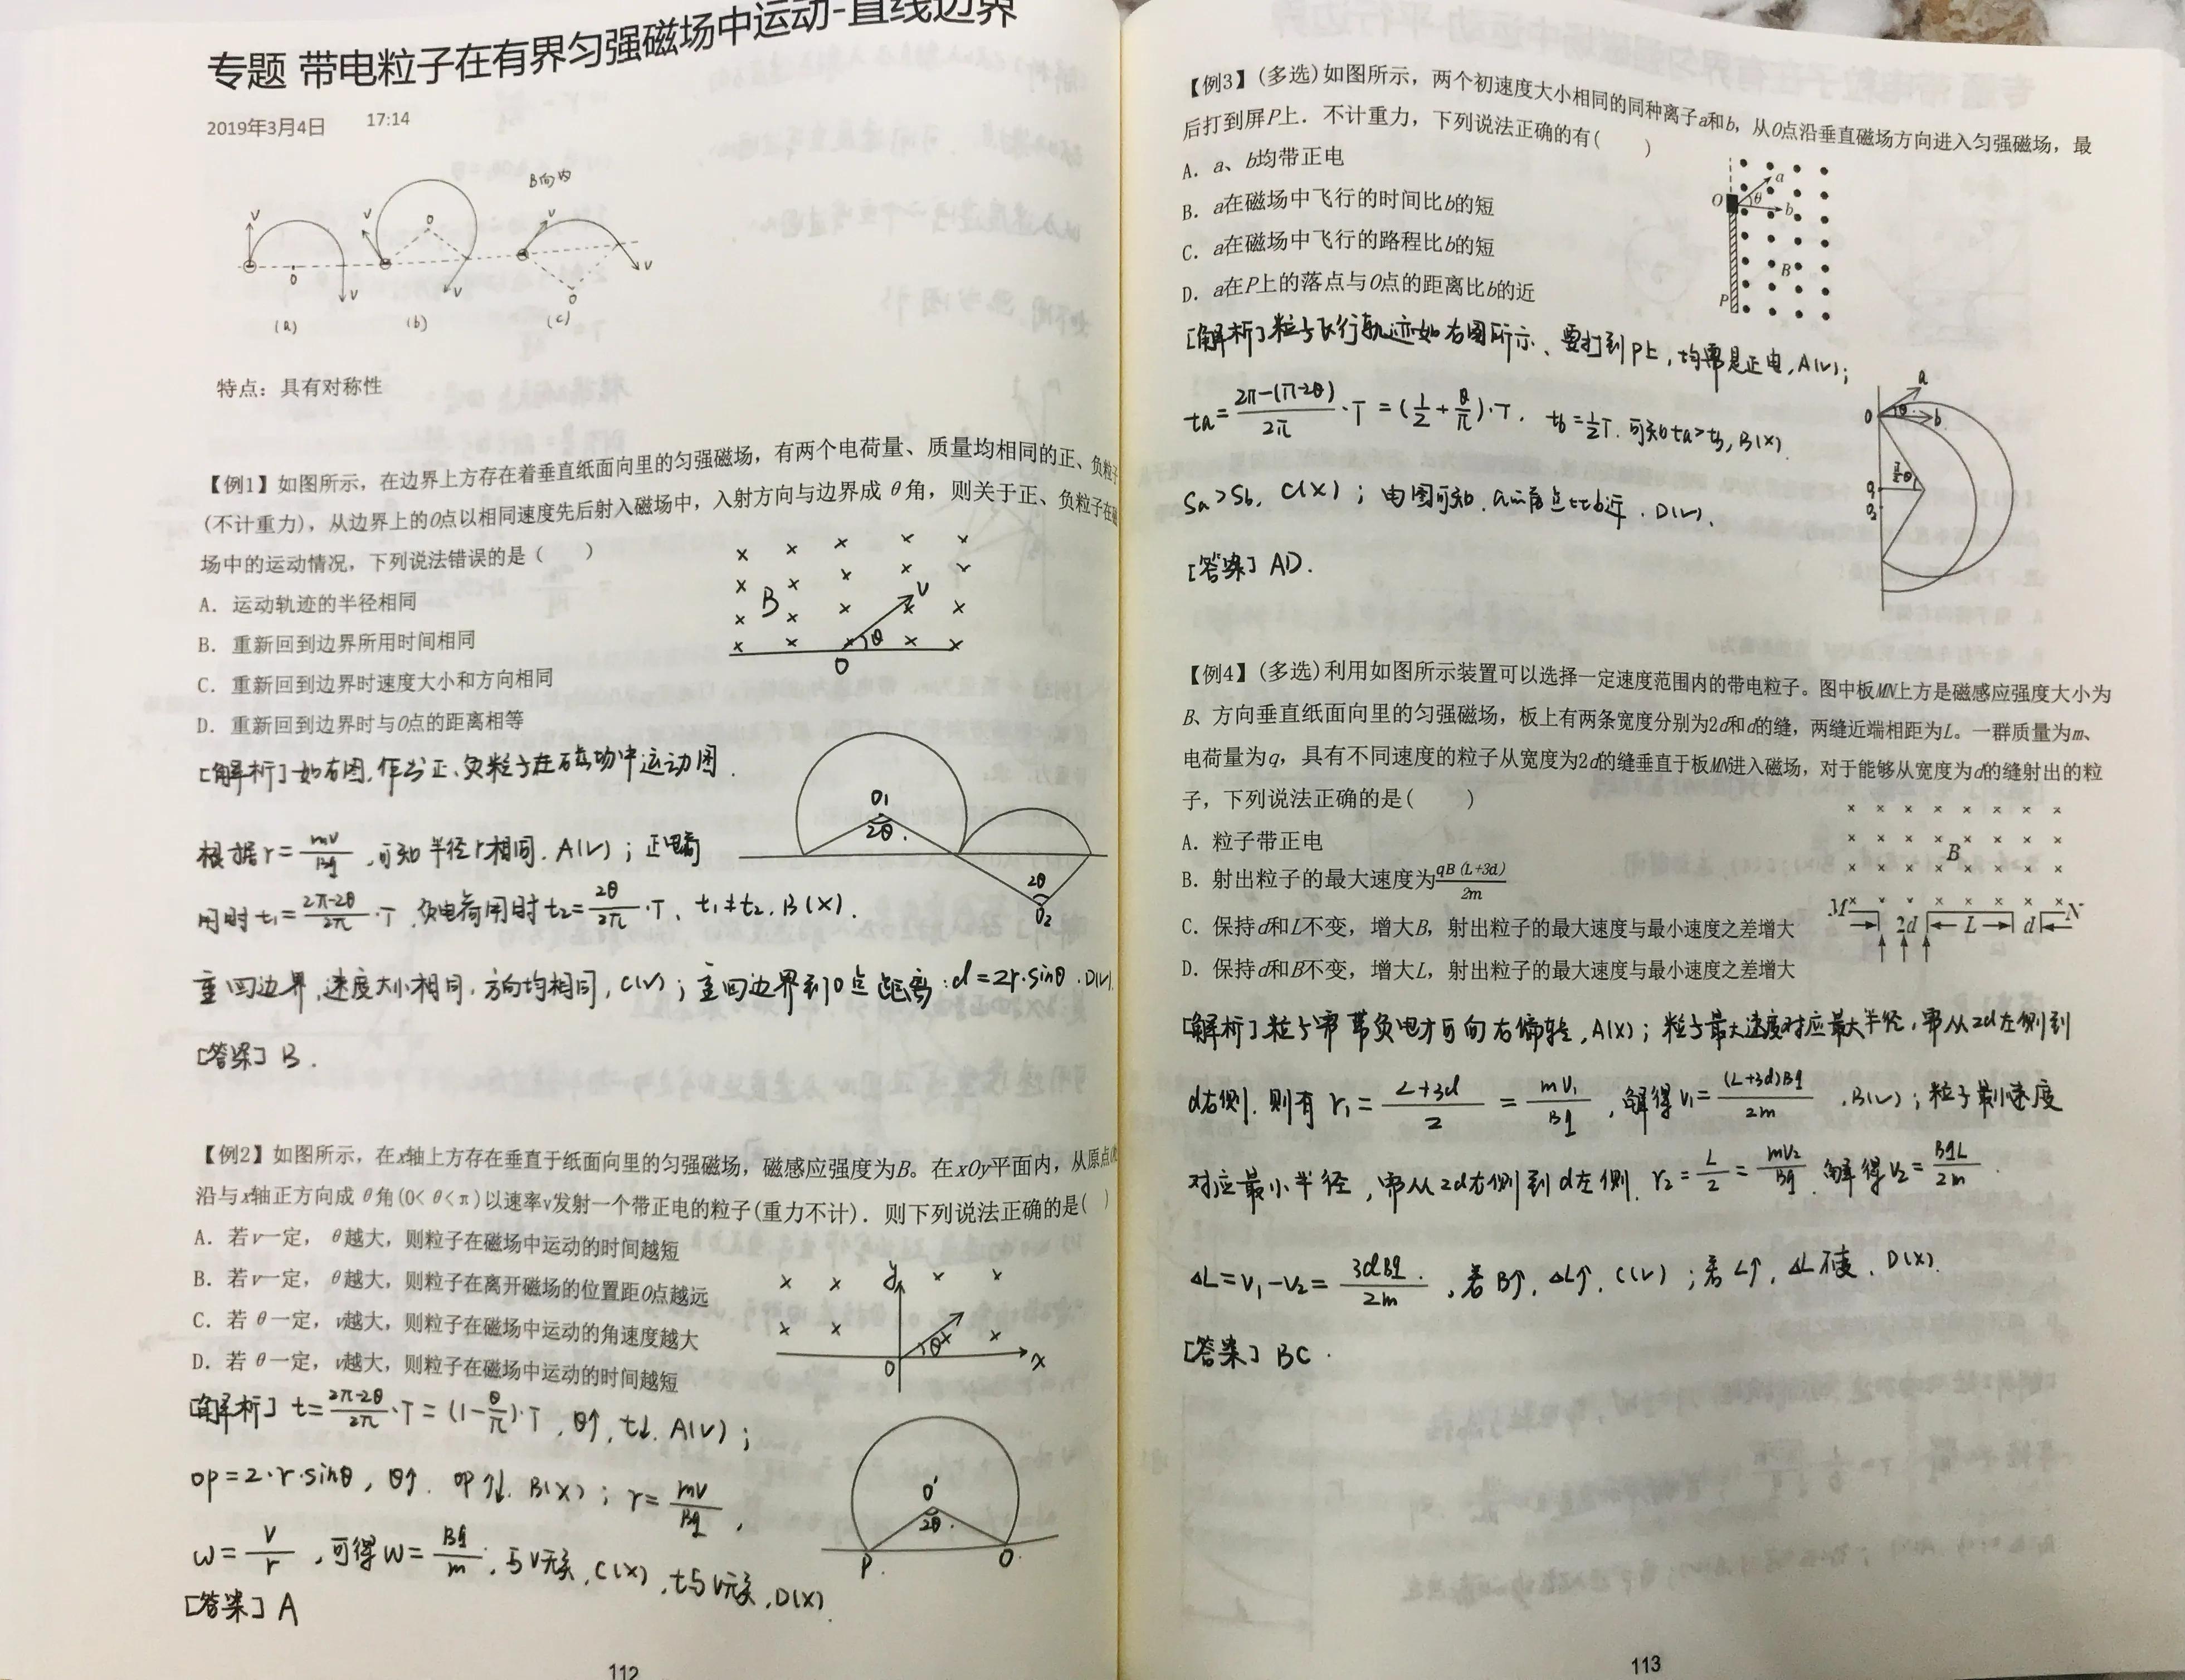 专题 带电粒子在有界匀强磁场中运动-直线边界
2019年3月4日 17:14
B向内
v v v
v v v
O O O
(a) (b) (c)
特点：具有对称性
【例1】如图所示，在边界上方存在着垂直纸面向里的匀强磁场，有两个电荷量、质量均相同的正、负粒子
(不计重力)，从边界上的O点以相同速度先后射入磁场中，入射方向与边界成θ角，则关于正、负粒子在磁
场中的运动情况，下列说法错误的是（　　）
A. 运动轨迹的半径相同
B. 重新回到边界所用时间相同
C. 重新回到边界时速度大小和方向相同
D. 重新回到边界时与O点的距离相等
B v θ O
[解析]如右图,作出正、负粒子在磁场中运动图.
O1 2θ 2θ O2
根据r=mv/Bq,可知半径r相同.A(√)；正电荷
用时t1=(2π-2θ)/2π·T,负电荷用时t2=2θ/2π·T、t1≠t2.B(×).
重回边界,速度大小相同,方向均相同,C(√)；重回边界到O点距离:d=2r·sinθ.D(√).
[答案] B.
【例2】如图所示，在x轴上方存在垂直于纸面向里的匀强磁场，磁感应强度为B。在xOy平面内，从原点O处
沿与x轴正方向成θ角(0<θ<π)以速率v发射一个带正电的粒子(重力不计)．则下列说法正确的是( )
A. 若v一定，θ越大，则粒子在磁场中运动的时间越短
B. 若v一定，θ越大，则粒子在离开磁场的位置距O点越远
C. 若θ一定，v越大，则粒子在磁场中运动的角速度越大
D. 若θ一定，v越大，则粒子在磁场中运动的时间越短
y θ O x
[解析] t=(2π-2θ)/2π·T=(1-θ/π)·T,θ↑,t↓.A(√)；
OP=2·r·sinθ,θ↑.OP↑↓.B(×)；r=mv/Bq,
ω=v/r,可得ω=Bq/m,与v无关,C(×),t与v无关,D(×).
O' 2θ P O
[答案] A
112
【例3】(多选)如图所示，两个初速度大小相同的同种离子a和b，从O点沿垂直磁场方向进入匀强磁场，最
后打到屏P上．不计重力，下列说法正确的有(　　)
A. a、b均带正电
B. a在磁场中飞行的时间比b的短
C. a在磁场中飞行的路程比b的短
D. a在P上的落点与O点的距离比b的近
O a θ b B P
[解析]粒子飞行轨迹如右图所示、要打到P上,均需是正电,A(√);
ta=(2π-(π-2θ))/2π·T=(1/2+θ/π)·T. tb=1/2T.可知ta>tb,B(×).
Sa>Sb,C(×)；由图可知.a的落点比b近.D(√).
[答案] AD.
O a θ b
【例4】(多选)利用如图所示装置可以选择一定速度范围内的带电粒子。图中板MN上方是磁感应强度大小为
B、方向垂直纸面向里的匀强磁场，板上有两条宽度分别为2d和d的缝，两缝近端相距为L。一群质量为m、
电荷量为q，具有不同速度的粒子从宽度为2d的缝垂直于板MN进入磁场，对于能够从宽度为d的缝射出的粒
子，下列说法正确的是(　　)
A. 粒子带正电
B. 射出粒子的最大速度为qB(L+3d)/2m
C. 保持d和L不变，增大B，射出粒子的最大速度与最小速度之差增大
D. 保持d和B不变，增大L，射出粒子的最大速度与最小速度之差增大
B
M 2d L d N
[解析]粒子需带负电才可向右偏转,A(×)；粒子最大速度对应最大半径,需从2d左侧到
d右侧.则有r1=(L+3d)/2=mv1/Bq,解得v1=(L+3d)Bq/2m.B(√)；粒子最小速度
对应最小半径,需从2d右侧到d左侧.r2=L/2=mv2/Bq.解得v2=BqL/2m.
ΔL=v1-v2=3dBq/2m.,若B↑,ΔL↑.C(√)；若L↑,ΔL不变、D(×).
[答案] BC.
113